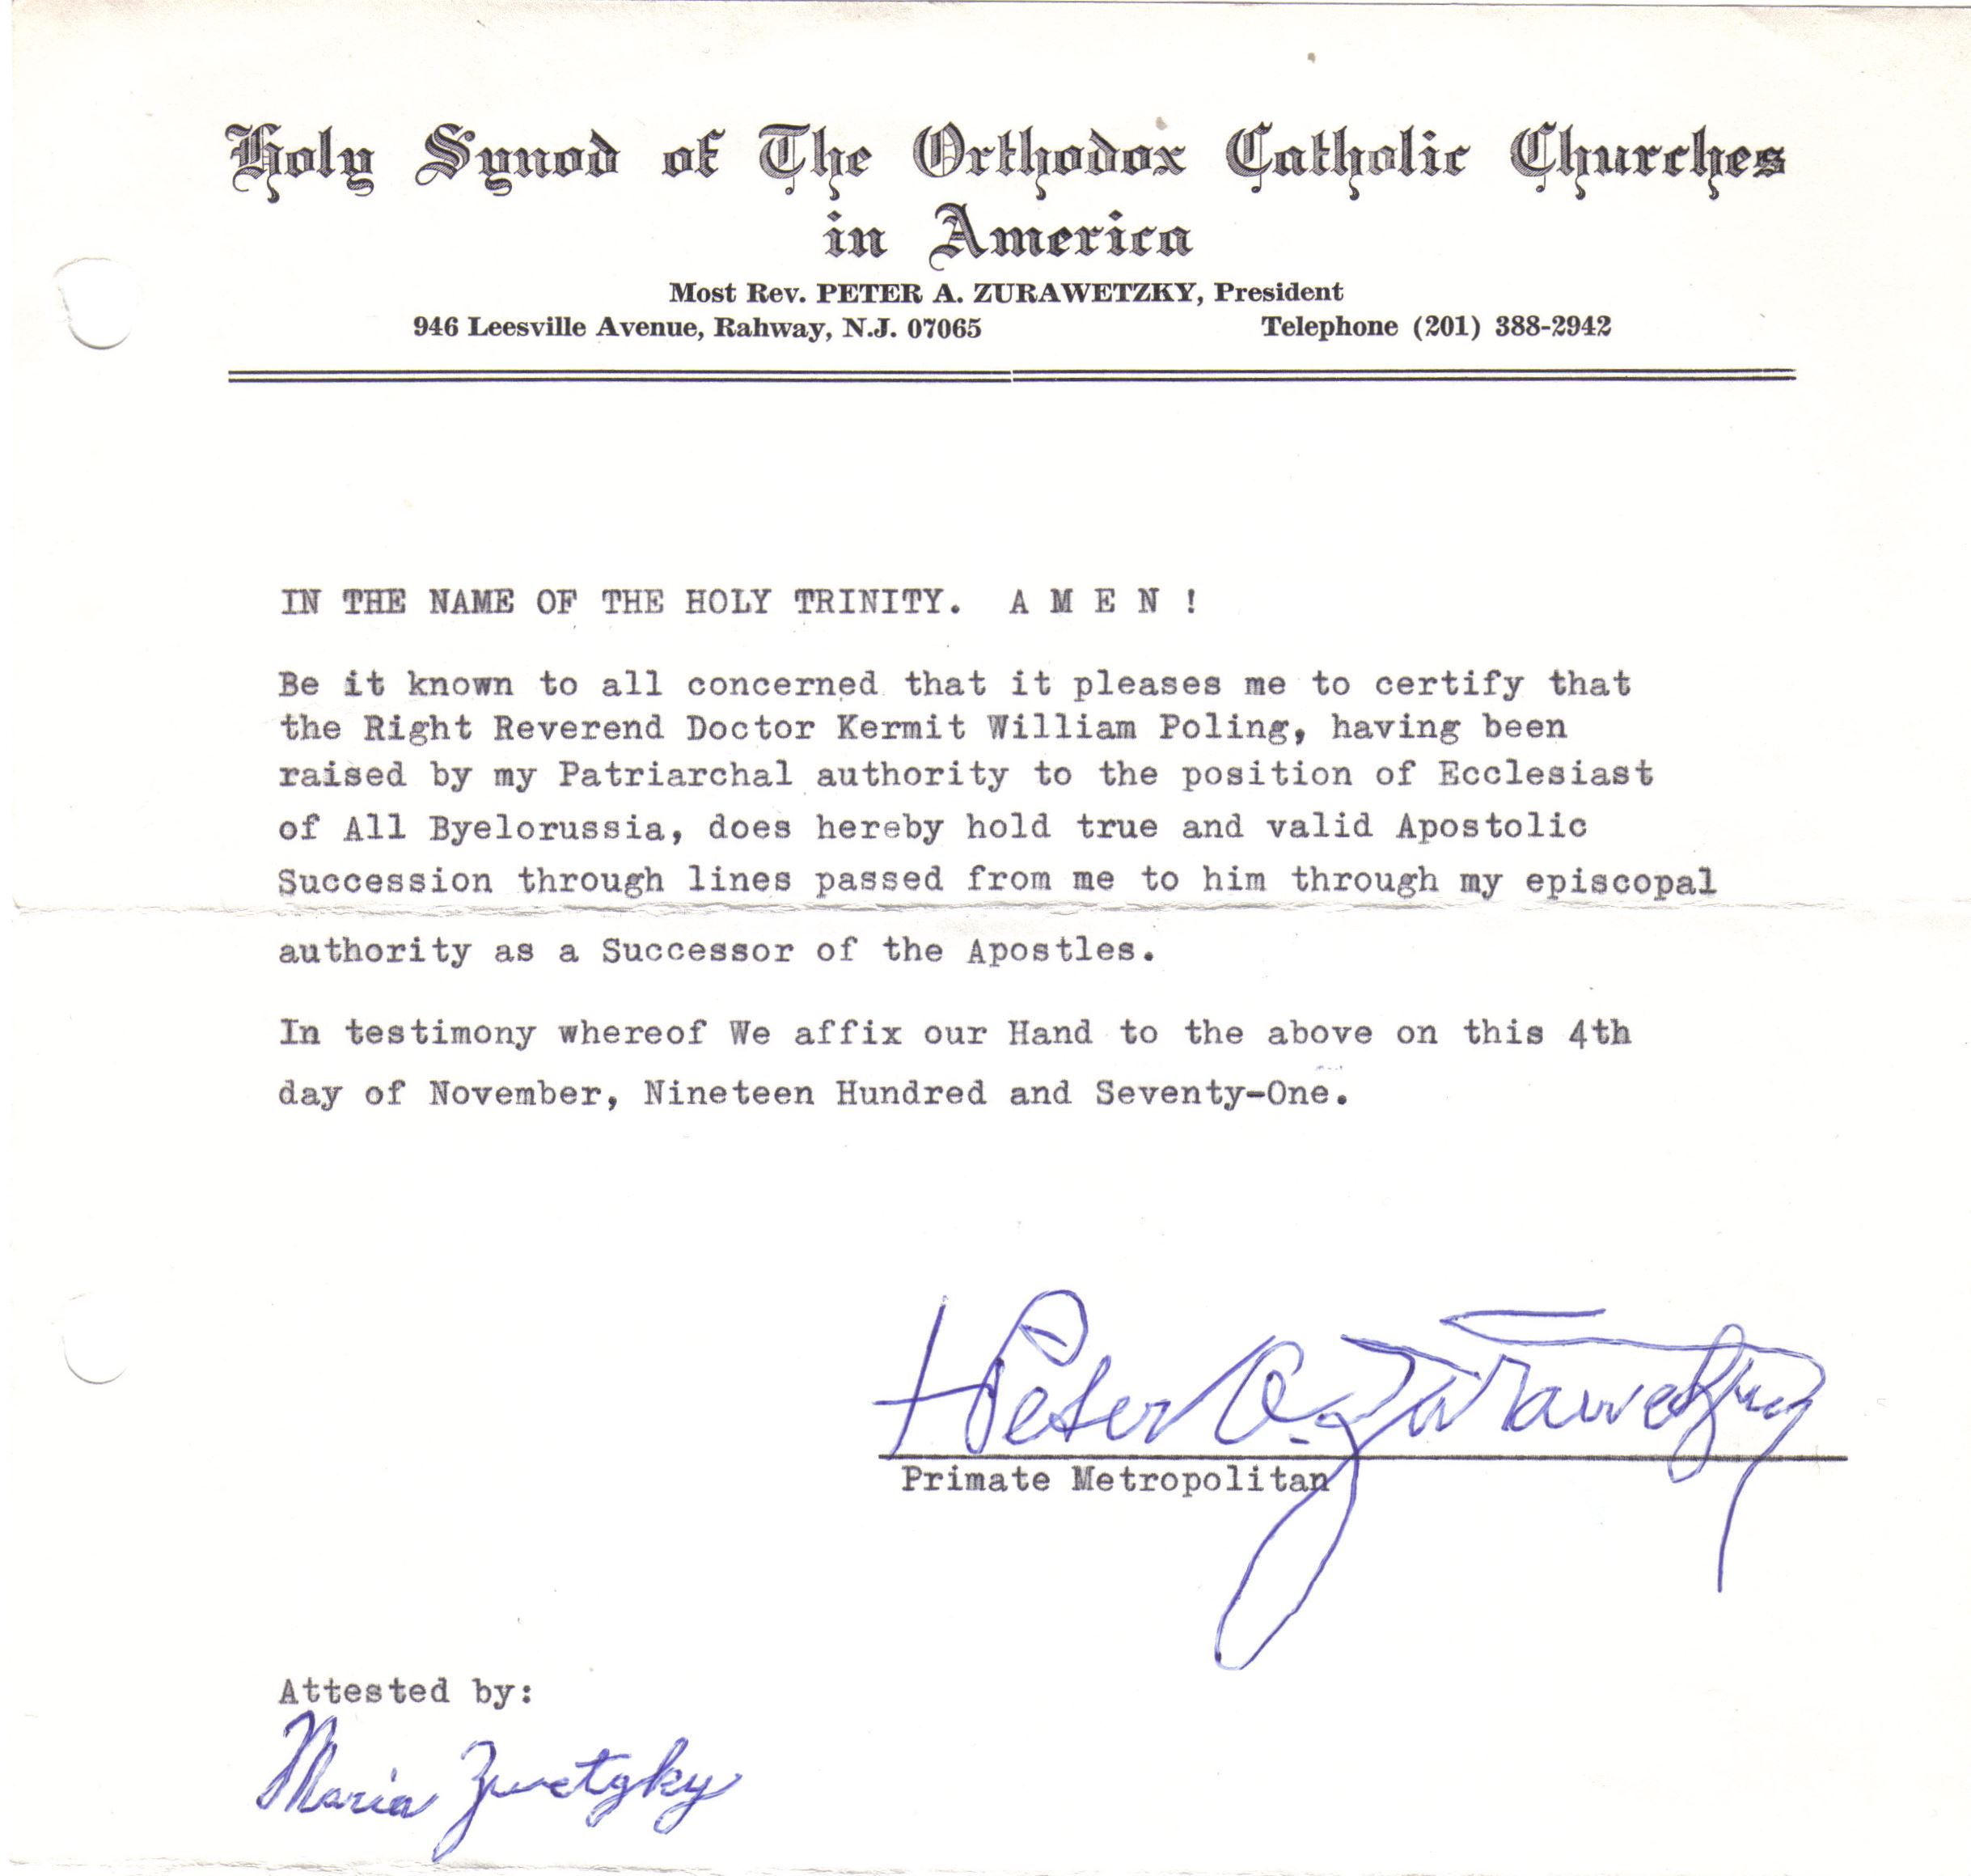 Holy Synod of The Orthodox Catholic Churches
in America
Most Rev. PETER A. ZURAWETZKY, President
946 Leesville Avenue, Rahway, N.J. 07065 Telephone (201) 388-2942
IN THE NAME OF THE HOLY TRINITY. A M E N !
Be it known to all concerned that it pleases me to certify that
the Right Reverend Doctor Kermit William Poling, having been
raised by my Patriarchal authority to the position of Ecclesiast
of All Byelorussia, does hereby hold true and valid Apostolic
Succession through lines passed from me to him through my episcopal
authority as a Successor of the Apostles.
In testimony whereof We affix our Hand to the above on this 4th
day of November, Nineteen Hundred and Seventy-One.
Peter A. Zurawetzky
Primate Metropolitan
Attested by:
Maria